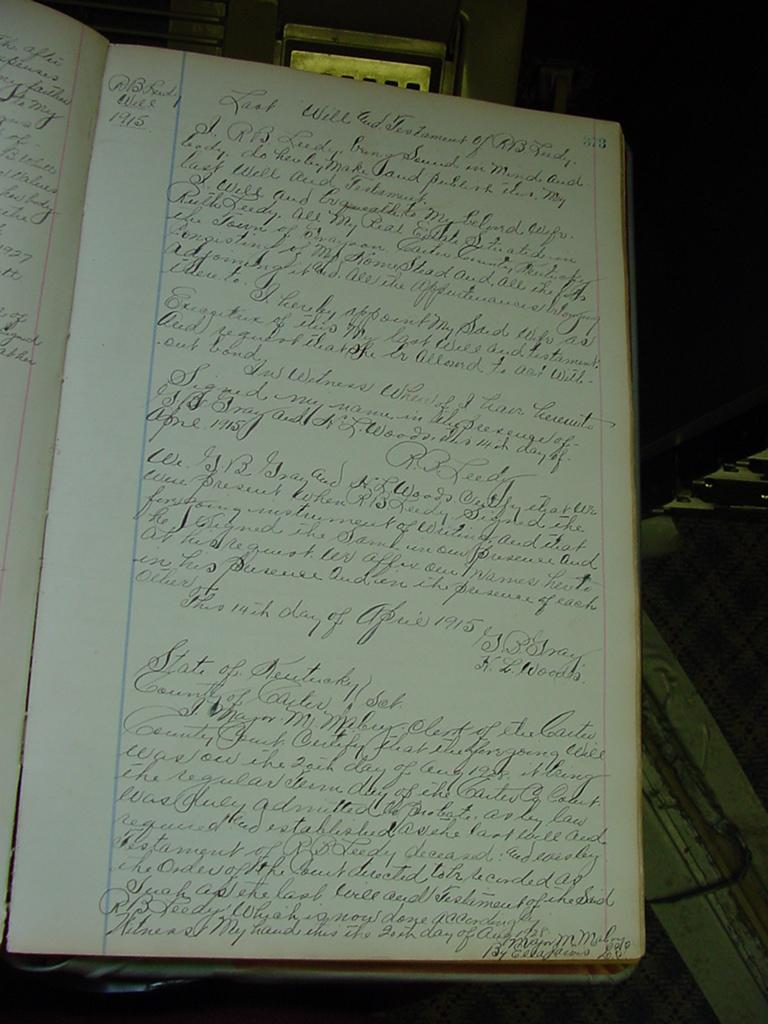 the after
expenses
my father
to my
of
Will
values
1927
of
signed
R B Leedy
Will
1915.
373
Last Will and Testament of R B Leedy.
I, R B Leedy, being Sound in Mind and
body, do hereby Make and publish this My
last Will and Testament.
I Will and bequeath to My beloved Wife
Ruth Leedy, all My Real Estate Situated in
the Town of Grayson, Carter County, Kentucky
Consisting of My Home Stead and all the lots
adjoining it and all the appurtenances belonging
there to. I hereby appoint My Said Wife as
Executrix of this My last Will and Testament
and request that She be allowed to act with-
out bond.
In Witness Whereof I have hereunto
Signed my name in the presence of
G B Gray and H L Woods. this 14th day of
April 1915
R. B. Leedy
We, G B Gray and H L Woods Certify that We
Were present when R B Leedy Signed the
foregoing instrument of Writing and that
he Signed the Same in our presence and
at his request We affix our Names hereto
in his presence and in the presence of each
other,
This 14th day of April 1915
G. B. Gray
H. L. Woods.
State of Kentucky
County of Carter } Sct.
I Major M Mabry, Clerk of the Carter
County Court Certify that the foregoing Will
Was on the 20th day of Aug 1928. it being
the regular Term day of the Carter Co Court
Was duly admitted to Probate, as by law
required and established as the last Will and
Testament of R B Leedy deceased; and was by
the Order of the Court directed to be recorded as
Such as the last Will and Testament of the Said
R B Leedy. Which is now done accordingly
Witness My hand this the 20th day of Aug 1928.
Major M
By